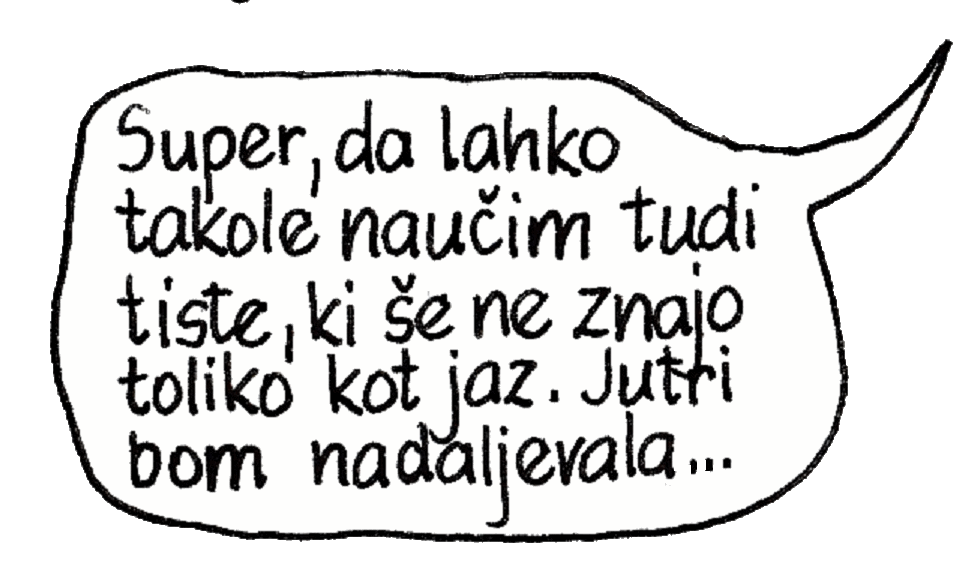 Super, da lahko
takole naučim tudi
tiste, ki še ne znajo
toliko kot jaz. Jutri
bom nadaljevala...